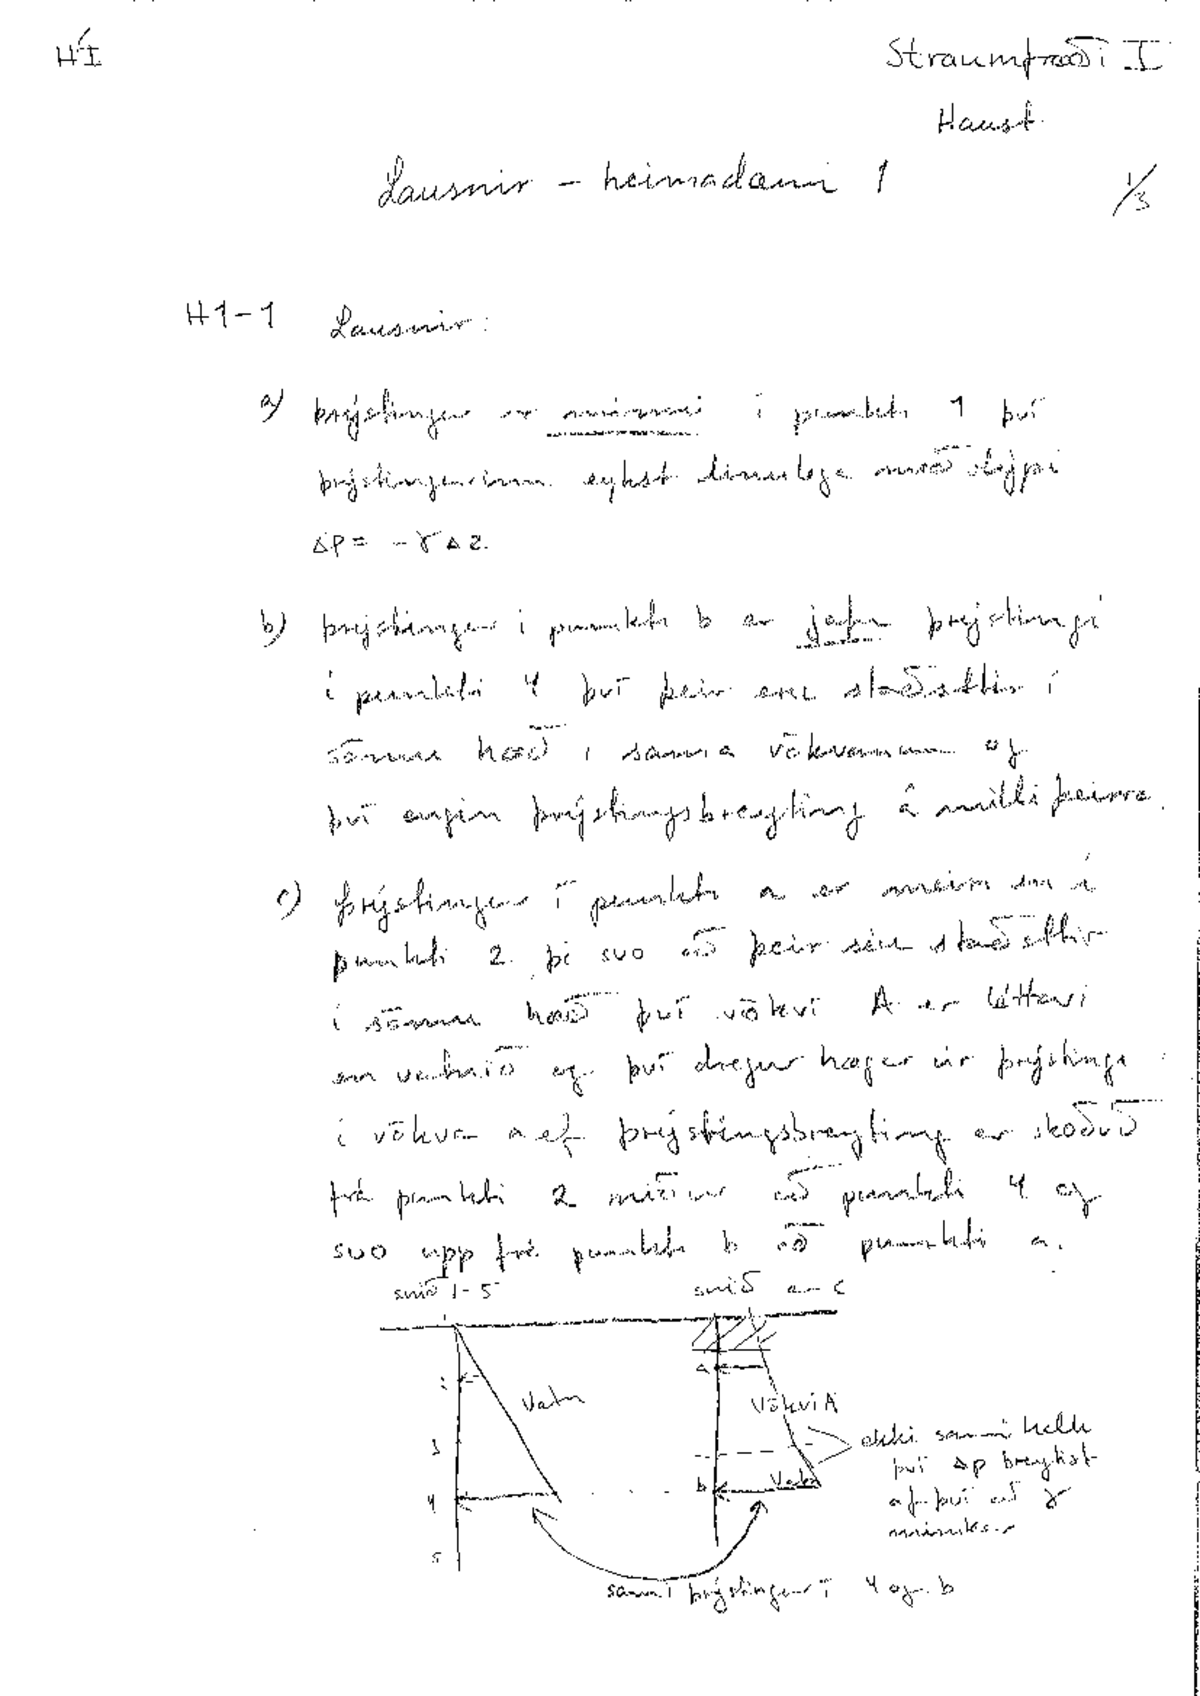 HÍ
Straumfræði I
Haust
Lausnir - heimadæmi 1
1/3
H1-1 Lausnir:
a) þrýstingur er minni í punkti 1 því
þrýstingurinn eykst línulega með dýpi
Δp = - γ Δz.
b) þrýstingur í punkti b er jafn þrýstingi
í punkti 4 því þeir eru staðsettir í
sömu hæð í sama vökvanum og
því engin þrýstingsbreyting á milli þeirra.
c) þrýstingur í punkti a er meiri en í
punkti 2 þó svo að þeir séu staðsettir
í sömu hæð því vökvi A er léttari
en vatnið og því dregur hægar úr þrýstingi
í vökva a ef þrýstingsbreyting er skoðuð
frá punkti 2 niður að punkti 4 og
svo upp frá punkti b að punkti a.
snið 1-5
snið a-c
1
2
Vatn
3
4
5
a
Vökvi A
b
Vatn
ekki sami halli
því Δp breytist
af því að γ
minnkar
sami þrýstingur í 4 og b